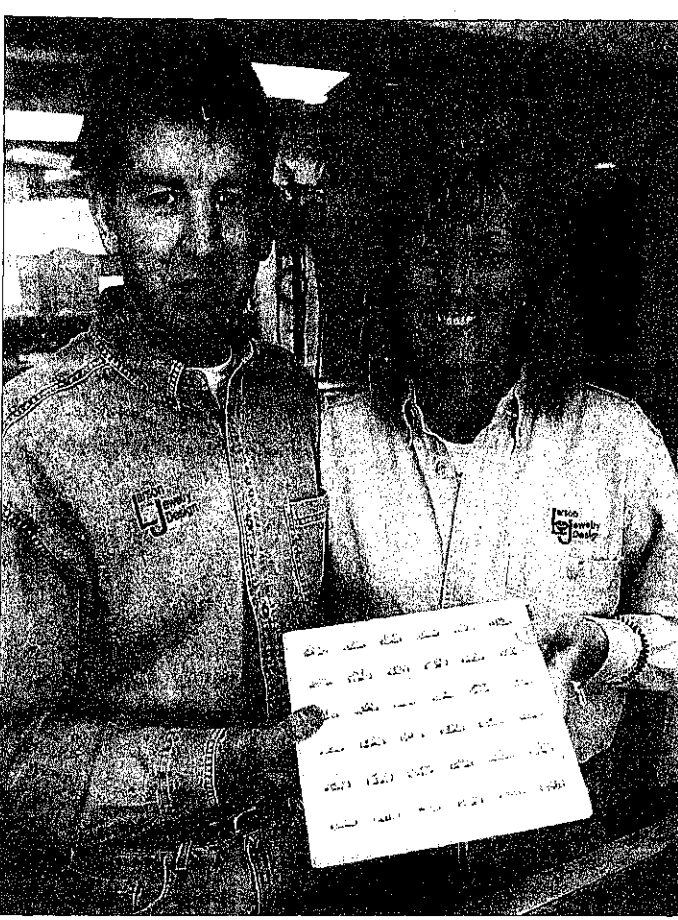 Larson
Jewelry
Design
Larson
Jewelry
Design